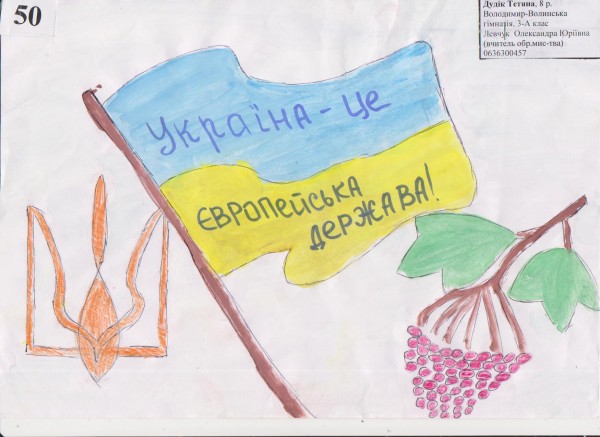 50
Дудік Тетяна, 8 р.
Володимир-Волинська
гімназія, 3-А клас
Левчук Олександра Юріївна
(вчитель обр.мис-тва)
0636300457
Україна - це
ЄВРОПейСЬКА
ДЕРЖАВА!